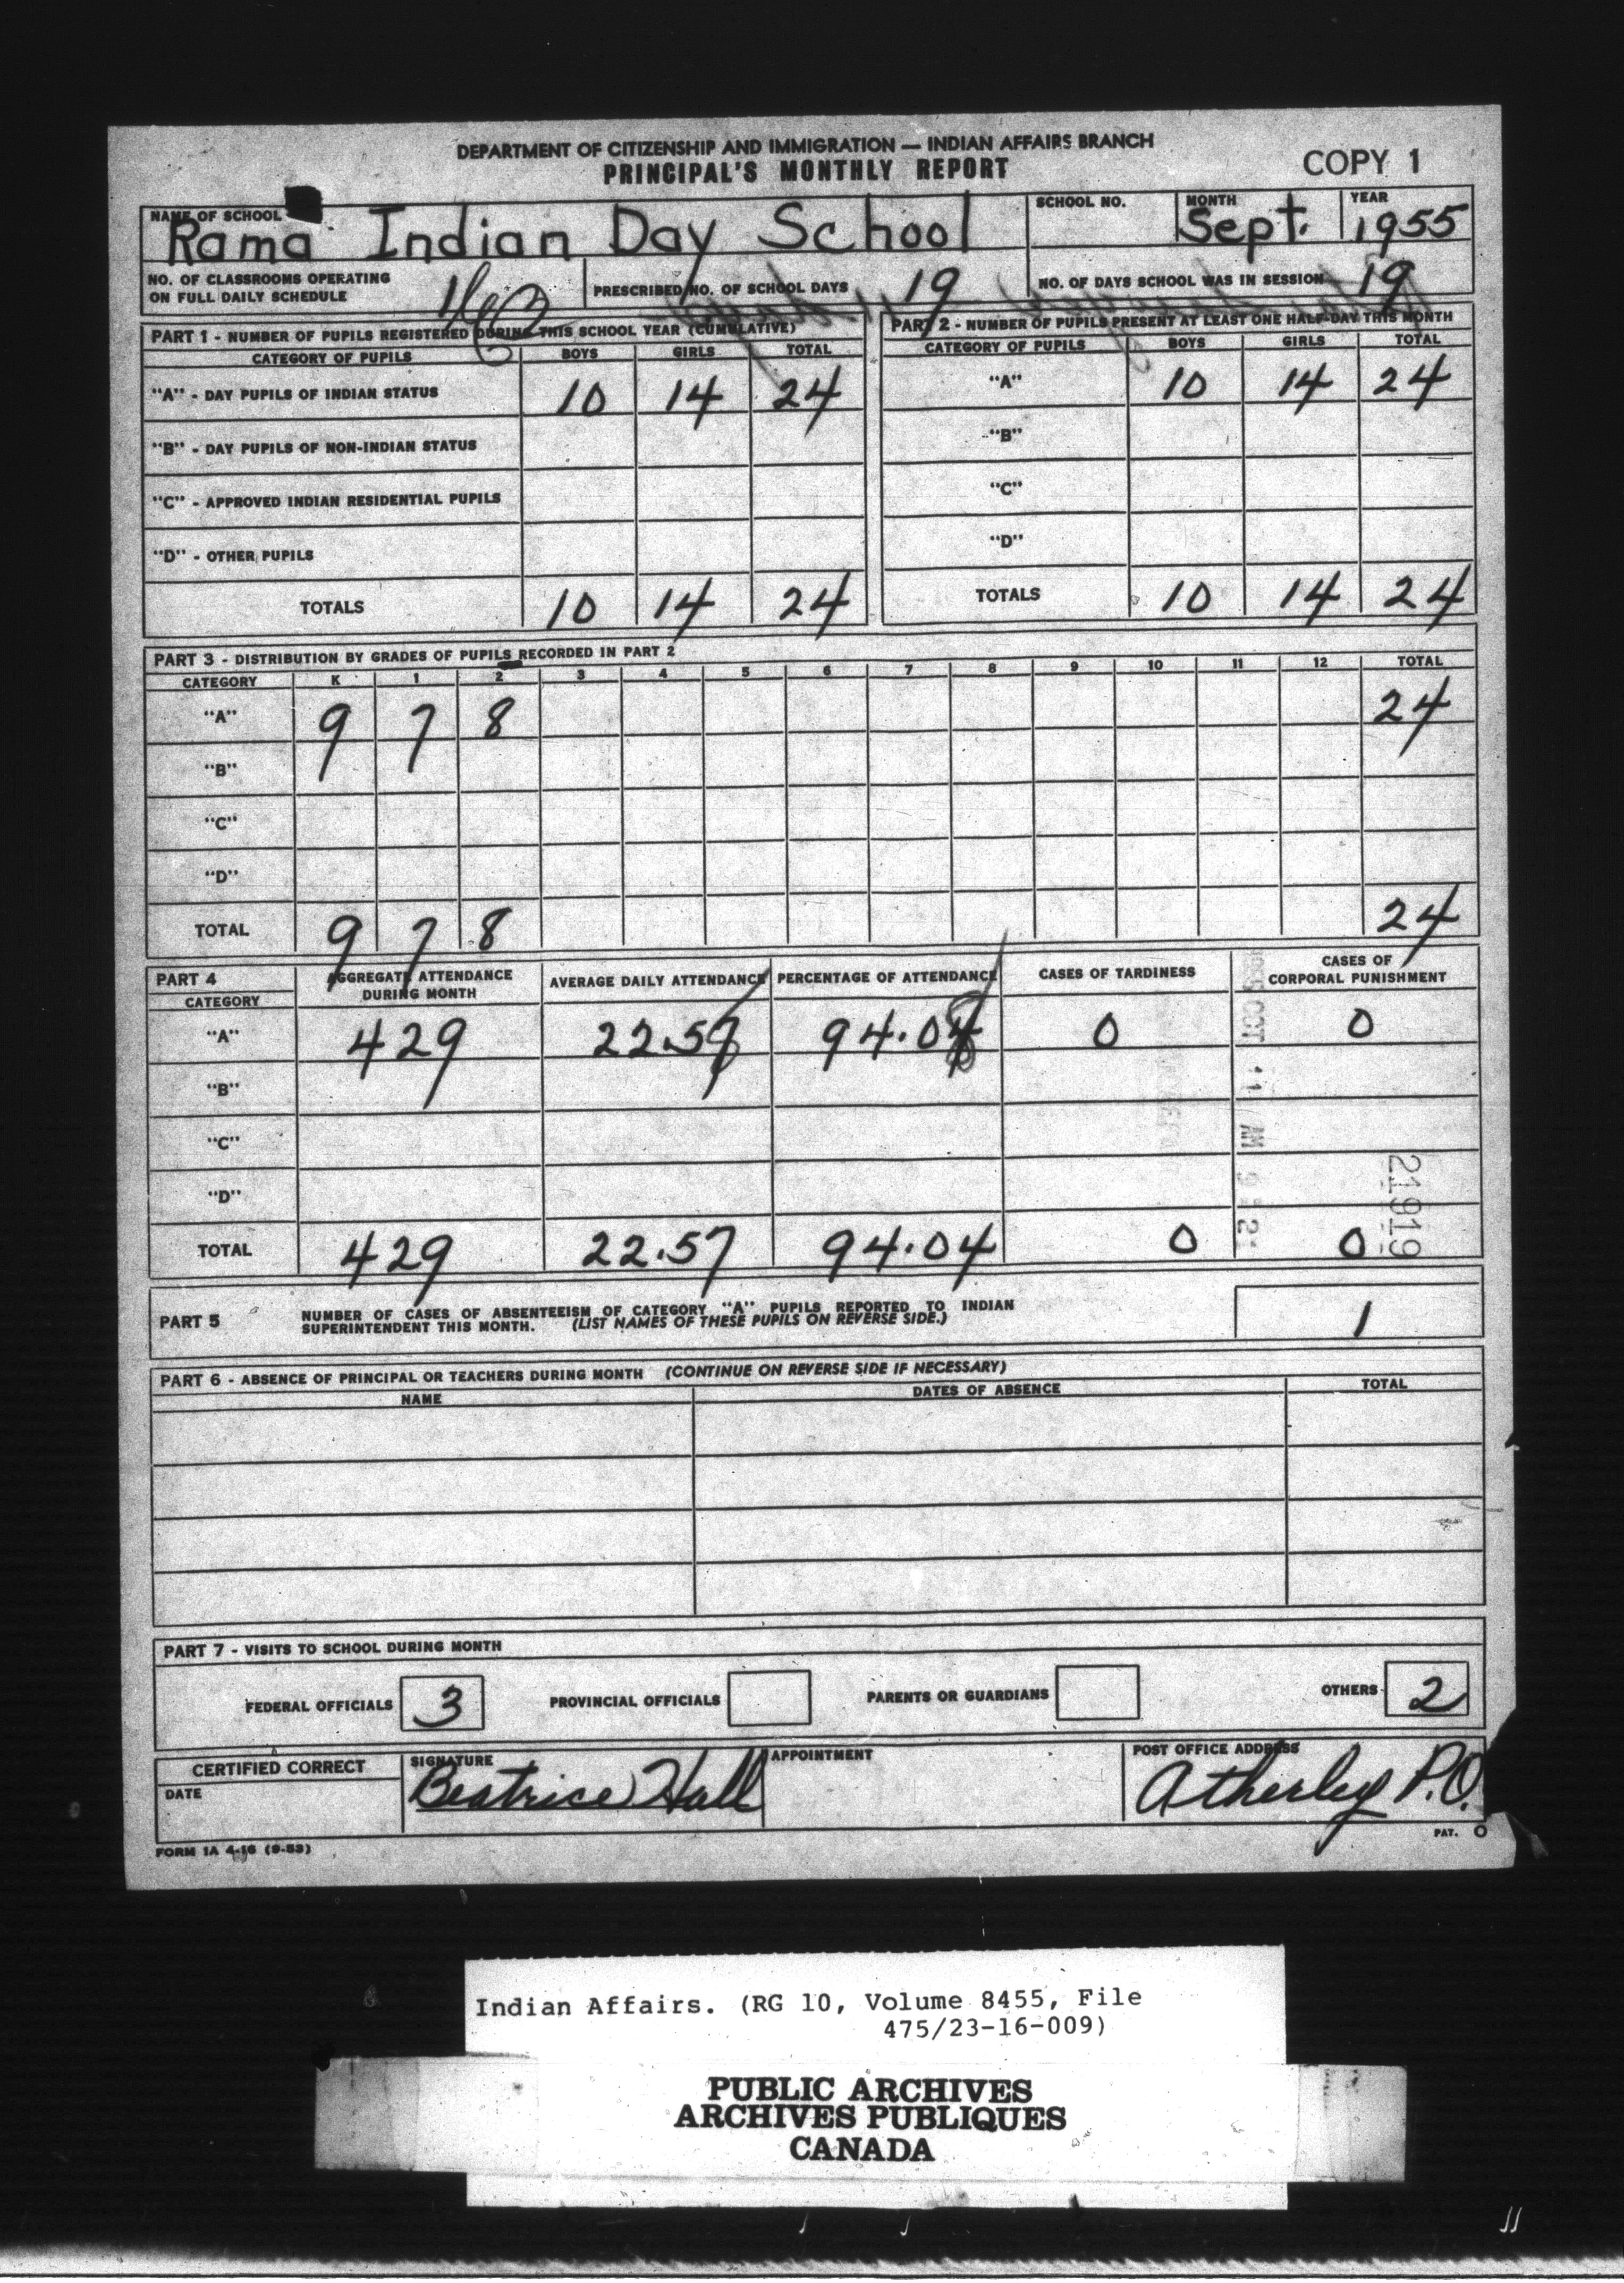 DEPARTMENT OF CITIZENSHIP AND IMMIGRATION — INDIAN AFFAIRS BRANCH
PRINCIPAL'S MONTHLY REPORT
COPY 1
NAME OF SCHOOL Rama Indian Day School
SCHOOL NO.
MONTH Sept.
YEAR 1955
NO. OF CLASSROOMS OPERATING
ON FULL DAILY SCHEDULE
PRESCRIBED NO. OF SCHOOL DAYS 19
NO. OF DAYS SCHOOL WAS IN SESSION 19
PART 1 - NUMBER OF PUPILS REGISTERED DURING THIS SCHOOL YEAR (CUMULATIVE)
CATEGORY OF PUPILS BOYS GIRLS TOTAL
"A" - DAY PUPILS OF INDIAN STATUS 10 14 24
"B" - DAY PUPILS OF NON-INDIAN STATUS
"C" - APPROVED INDIAN RESIDENTIAL PUPILS
"D" - OTHER PUPILS
TOTALS 10 14 24
PART 2 - NUMBER OF PUPILS PRESENT AT LEAST ONE HALF-DAY THIS MONTH
CATEGORY OF PUPILS BOYS GIRLS TOTAL
"A" 10 14 24
"B"
"C"
"D"
TOTALS 10 14 24
PART 3 - DISTRIBUTION BY GRADES OF PUPILS RECORDED IN PART 2
CATEGORY K 1 2 3 4 5 6 7 8 9 10 11 12 TOTAL
"A" 9 7 8 24
"B"
"C"
"D"
TOTAL 9 7 8 24
PART 4 AGGREGATE ATTENDANCE DURING MONTH AVERAGE DAILY ATTENDANCE PERCENTAGE OF ATTENDANCE CASES OF TARDINESS CASES OF CORPORAL PUNISHMENT
CATEGORY
"A" 429 22.57 94.04 0 0
"B"
"C"
"D"
TOTAL 429 22.57 94.04 0 0
OCT 11 AM
21919
PART 5 NUMBER OF CASES OF ABSENTEEISM OF CATEGORY "A" PUPILS REPORTED TO INDIAN
SUPERINTENDENT THIS MONTH. (LIST NAMES OF THESE PUPILS ON REVERSE SIDE.) 1
PART 6 - ABSENCE OF PRINCIPAL OR TEACHERS DURING MONTH (CONTINUE ON REVERSE SIDE IF NECESSARY)
NAME DATES OF ABSENCE TOTAL
PART 7 - VISITS TO SCHOOL DURING MONTH
FEDERAL OFFICIALS 3 PROVINCIAL OFFICIALS PARENTS OR GUARDIANS OTHERS 2
CERTIFIED CORRECT
DATE
SIGNATURE Beatrice Hall
APPOINTMENT
POST OFFICE ADDRESS Atherley P.O.
FORM 1A 4-16 (9-53)
PAT. O
Indian Affairs. (RG 10, Volume 8455, File
475/23-16-009)
PUBLIC ARCHIVES
ARCHIVES PUBLIQUES
CANADA